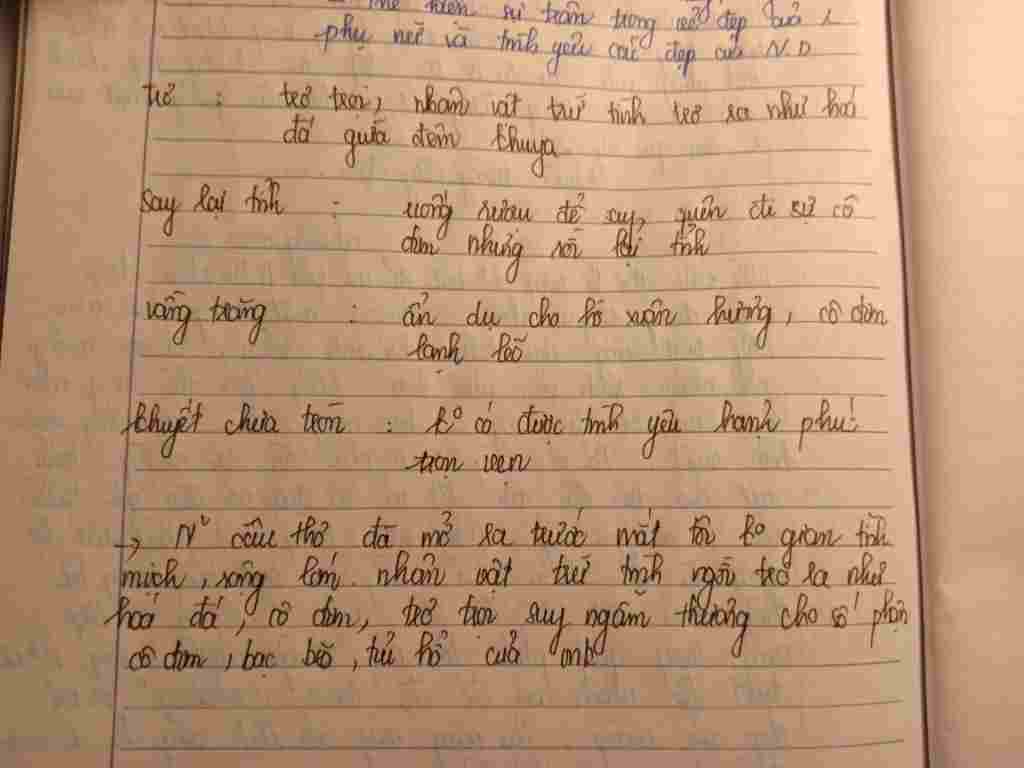 hiện sự trân trọng vẻ đẹp của
phụ nữ và tình yêu cái đẹp của N.D
trơ : trơ trọi, nhân vật trữ tình trơ ra như hoá
đá giữa đêm khuya
say lại tỉnh : uống rượu để say, quên đi sự cô
đơn nhưng rồi lại tỉnh
vầng trăng : ẩn dụ cho hồ xuân hương, cô đơn
lạnh lẽo
khuyết chưa tròn : ko có được tình yêu hạnh phúc
trọn vẹn
→ N~ câu thơ đã mở ra trước mắt tôi ko gian tĩnh
mịch, rộng lớn. nhân vật trữ tình ngồi trơ ra như
hoá đá, cô đơn, trơ trọi suy ngẫm thương cho số phận
cô đơn, bạc bẽo, tủi hổ của mk